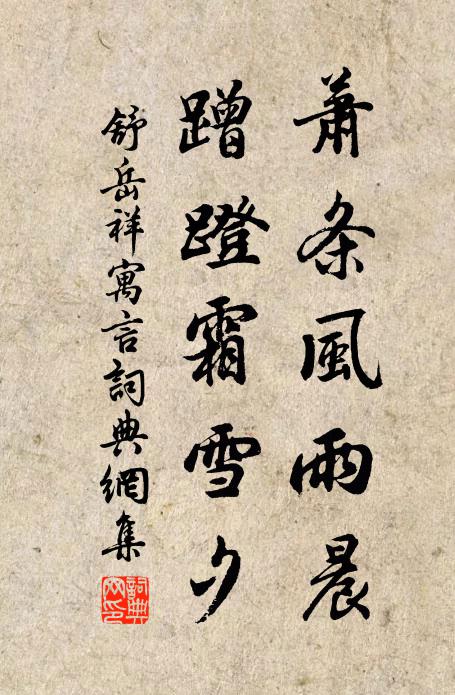 萧条風雨晨
蹭蹬霜雪夕
舒岳祥寓言詞典網集
詞典
网印